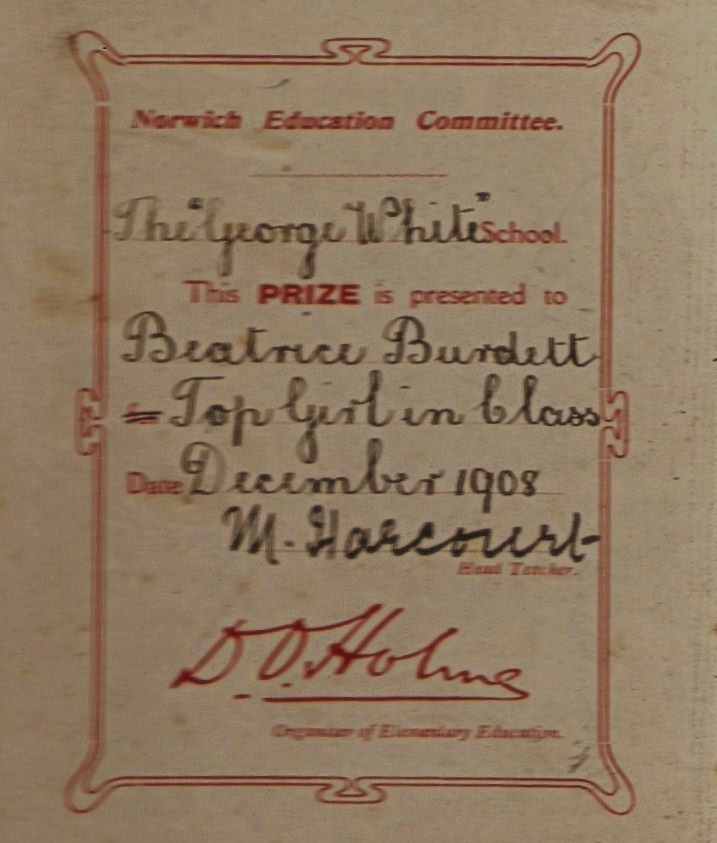 Norwich Education Committee.
The "George White" School.
This PRIZE is presented to
Beatrice Burdett
for Top Girl in Class
Date December 1908
M. Harcourt
Head Teacher.
D. O. Holme
Organiser of Elementary Education.